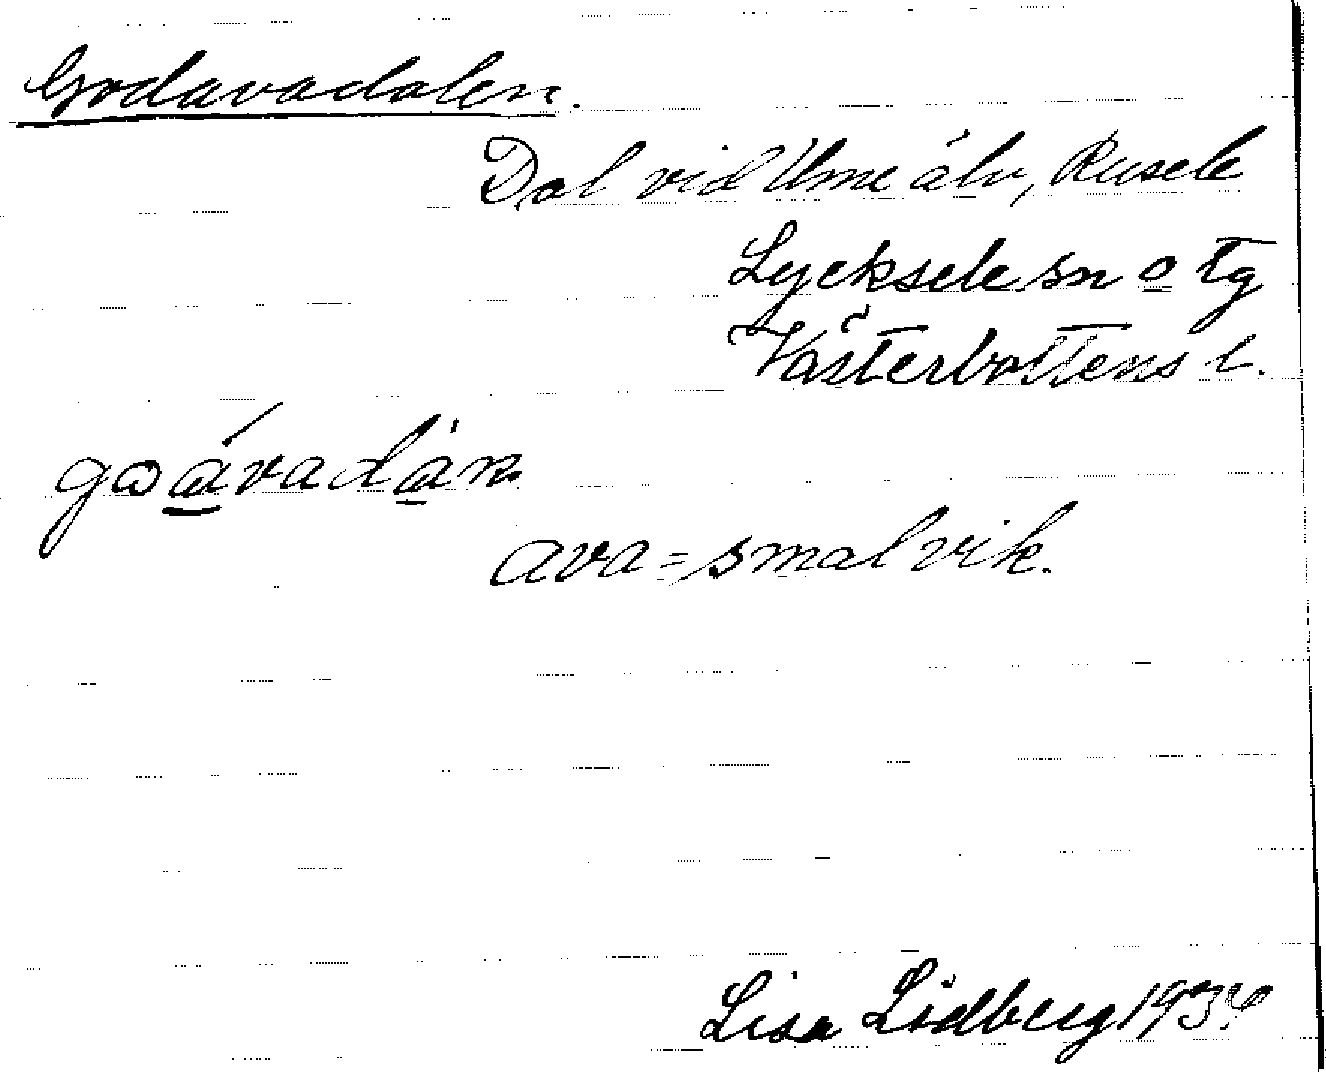 Godavadalen.
Dal vid Ume älv, Rusele
Lycksele sn o tg
Västerbottens l.
ava = smal vik.
Lisa Lidberg 1934